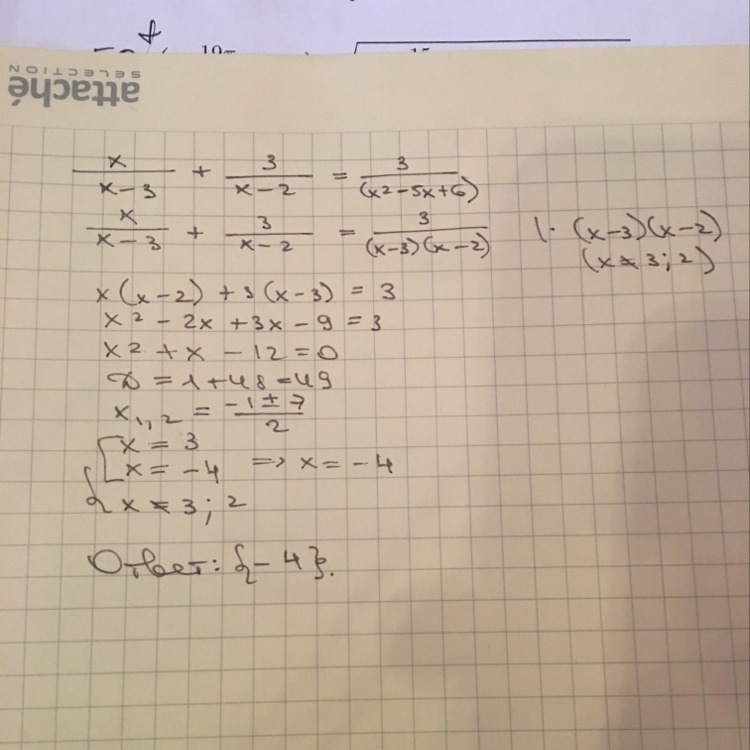 attaché
SELECTION
x/(x-3) + 3/(x-2) = 3/(x2-5x+6)
x/(x-3) + 3/(x-2) = 3/((x-3)(x-2)) |· (x-3)(x-2)
(x≠3; 2)
x(x-2) + 3(x-3) = 3
x2 - 2x + 3x - 9 = 3
x2 + x - 12 = 0
D = 1 + 48 = 49
x1,2 = (-1 ± 7)/2
x = 3
x = -4 => x = -4
x ≠ 3; 2
Ответ: {-4}.